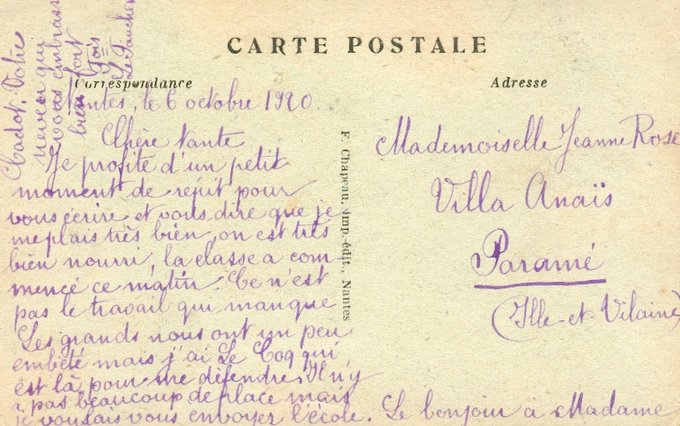 CARTE POSTALE
Correspondance
Adresse
Nantes, le 6 octobre 1920.
Chère tante
Je profite d'un petit
moment de répit pour
vous écrire et vous dire que je
me plais très bien, on est très
bien nourri, la classe a com
mencé ce matin. Ce n'est
pas le travail qui manque
Les grands nous ont un peu
embêté mais j'ai Le Coq qui
est là pour me défendre. Il n'y
a pas beaucoup de place mais
je voulais vous envoyer l'école. Le bonjour à Madame
Cadot. Votre
neveu qui
vous embrasse
bien fort
F. Chapeau, imp.-édit., Nantes
Mademoiselle Jeanne Rose
Villa Anaïs
Paramé
(Ille-et-Vilaine)